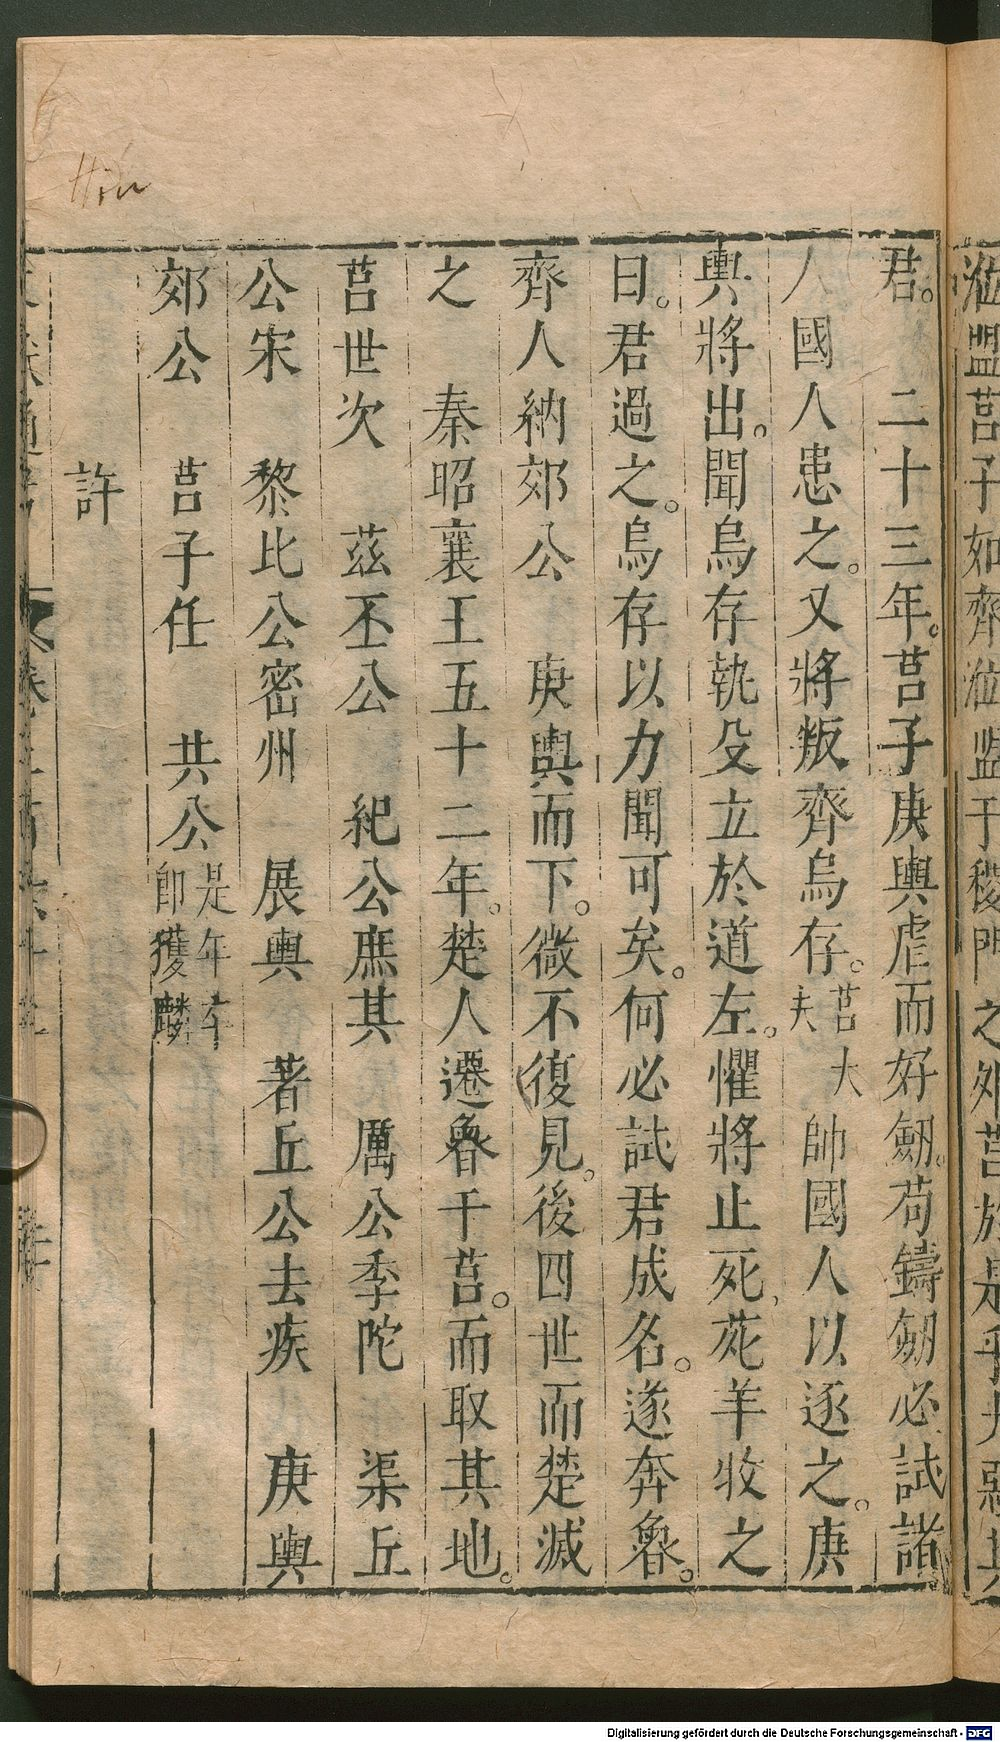 涖盟莒子如齊涖盟于稷門之外莒於是乎大惡其
君。 二十三年。莒子庚輿虐而好劒。苟鑄劒必試諸
人國人患之。又將叛齊烏存。莒大夫帥國人以逐之。庚
輿將出。聞烏存執殳立於道左。懼將止死、苑羊收之
曰。君過之。烏存以力聞可矣。何必試君成名。遂奔魯。
齊人納郊公 庚輿而下。微不復見。後四世而楚滅
之 秦昭襄王五十二年。楚人遷魯于莒。而取其地。
莒世次 茲丕公 紀公庶其 厲公季陀 渠丘
公宋 黎比公密州 展輿 著丘公去疾 庚輿
郊公 莒子任 共公是年卒卽獲麟
許
Hin
Digitalisierung gefördert durch die Deutsche Forschungsgemeinschaft - DFG